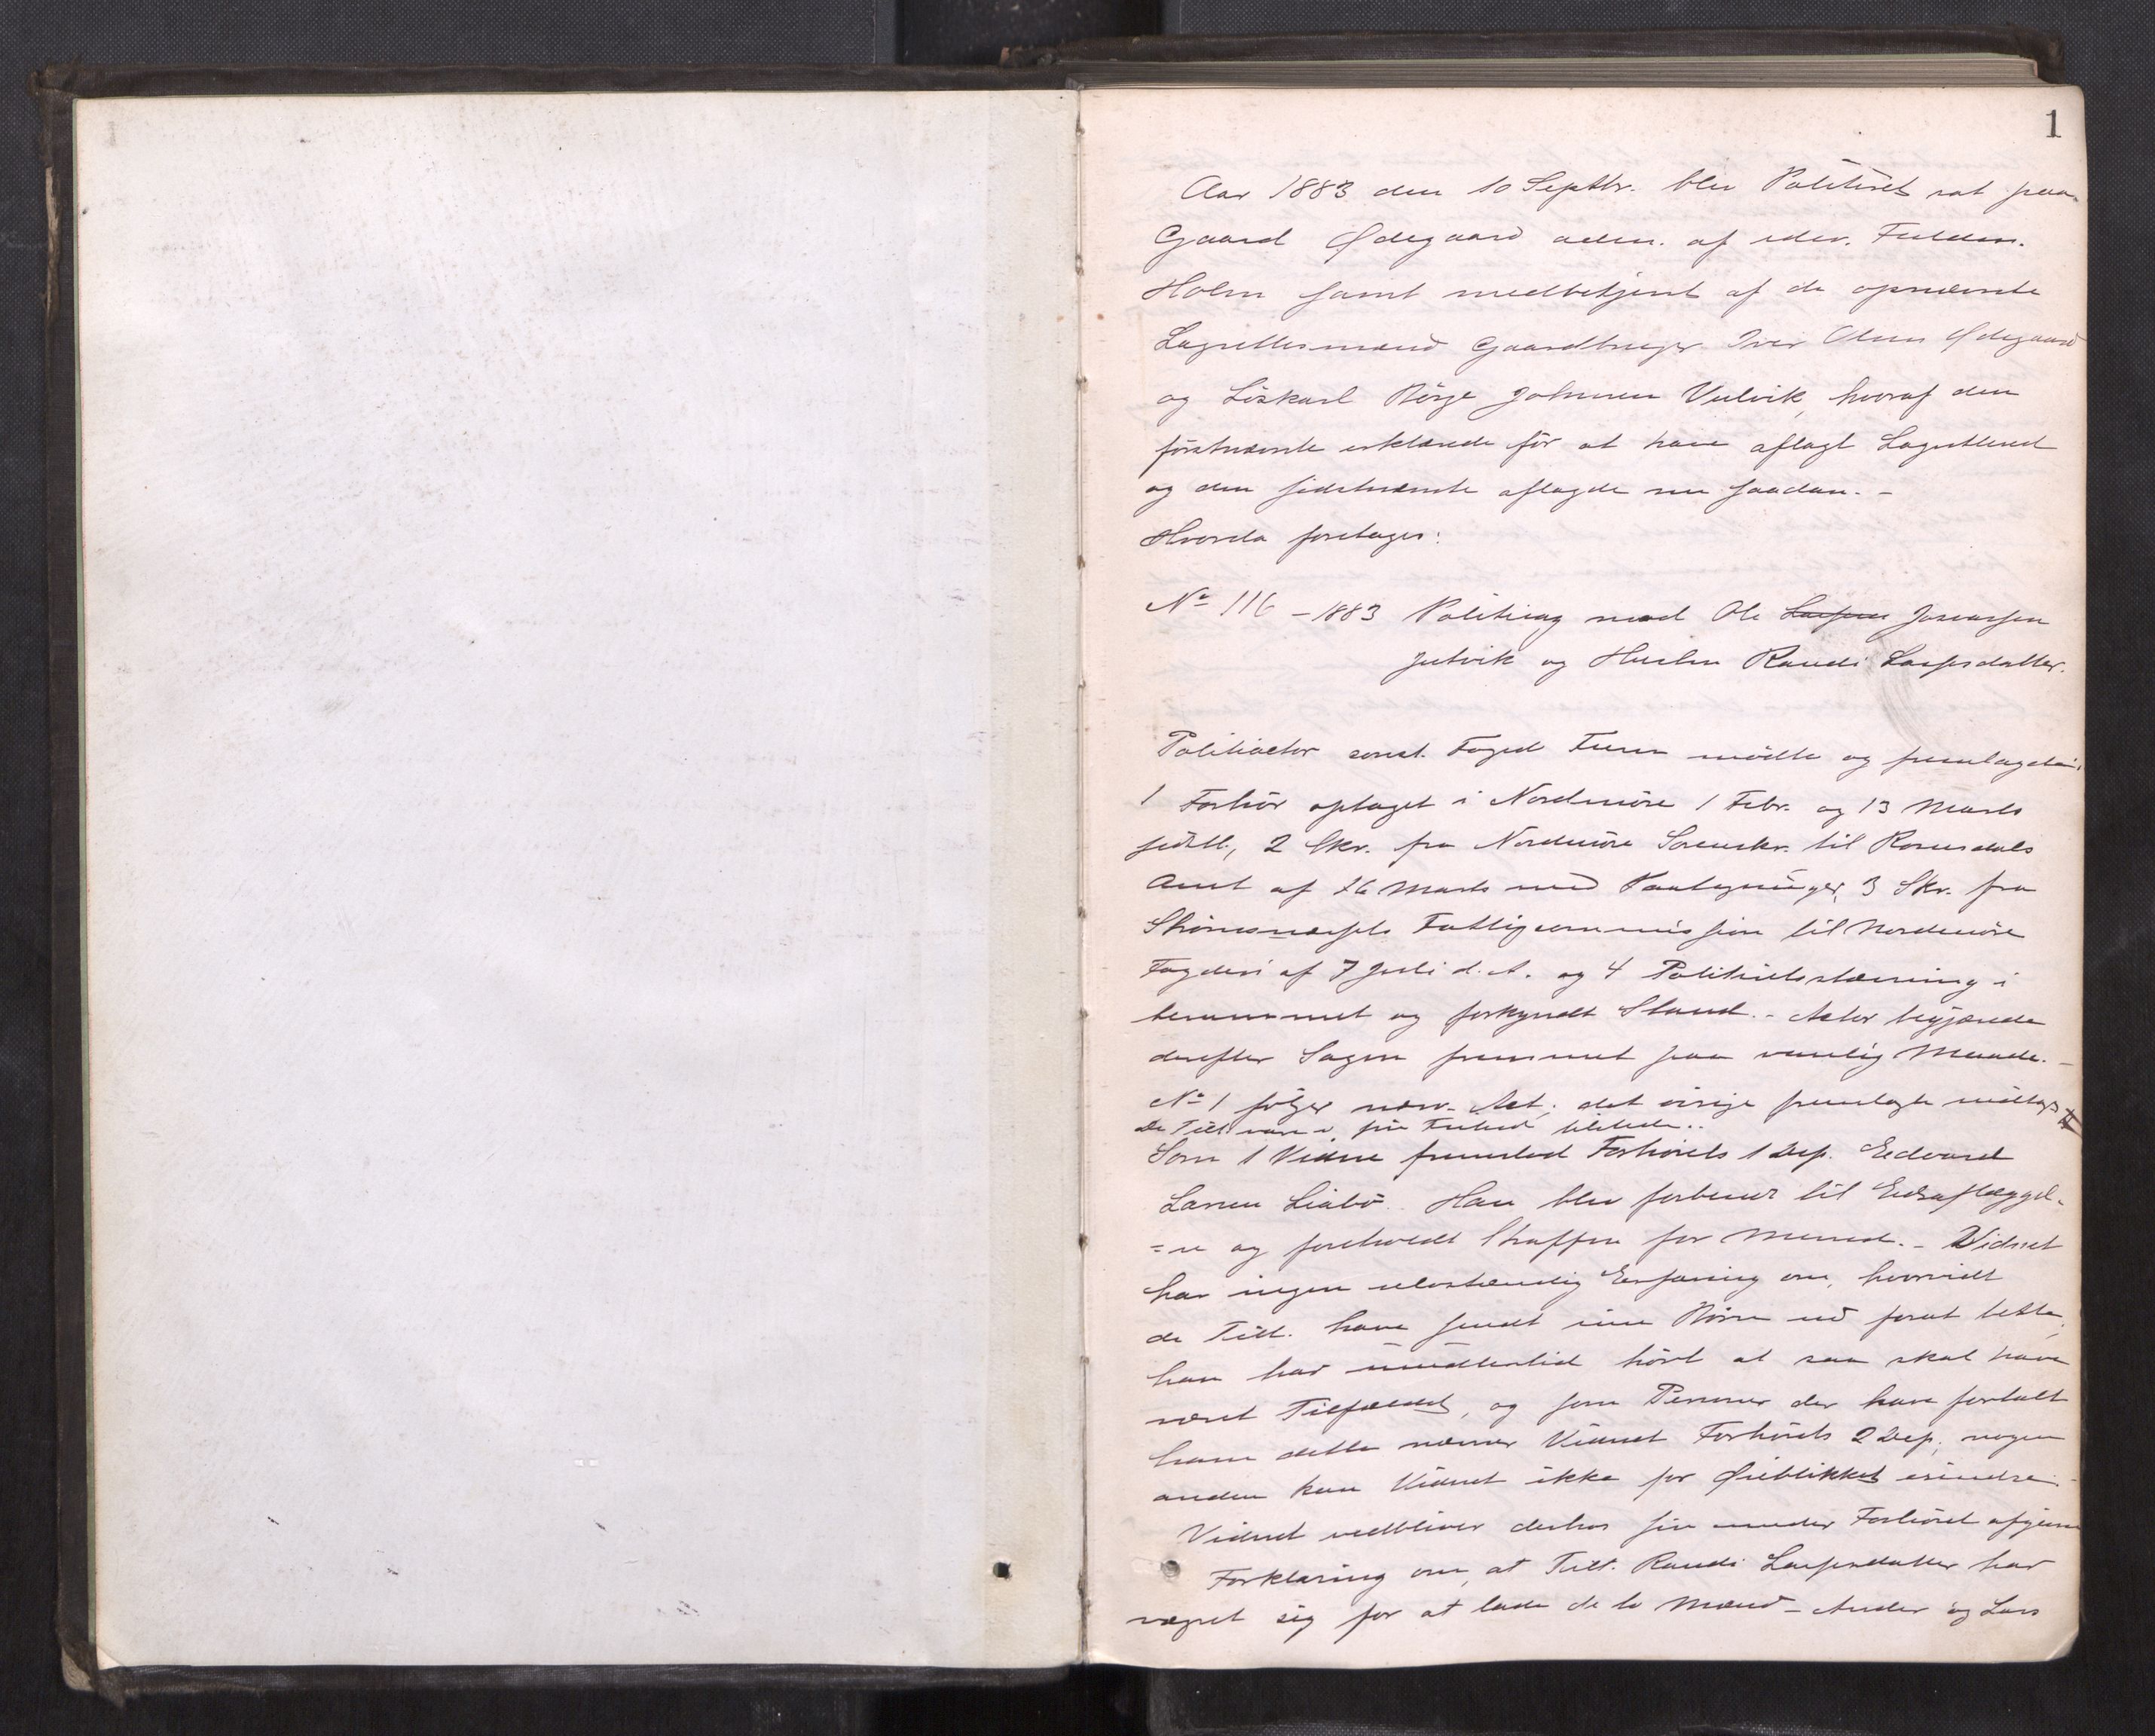 1
Aar 1883 den 10 Septbr. blev Politiret sat paa
Gaard Ødegaard adm. af edsv. Fuldm.
Holm samt medbetjent af de opnævnte
Lagrettesmænd Gaardbruger Iver Olsen Ødegaard
og Löskarl Börge Johnsen Vulvik, hvoraf den
förstnævnte erklærede för at have aflagt Lagretteed
og den sidstnævnte aflagde nu saadan. -
Hvorda foretages:
No 116 - 1883 Politisag mod Ole Larsen Jonassen
Julvik og Hustru Randi Larsdatter.
Politiactor const. Foged Furu mödte og fremlagde:
1 Forhör optaget i Nordmöre 1 Febr. og 13 Marts
sidstl., 2 Skr. fra Nordmöre Sorenskr. til Romsdals
Amt af 26 Marts med Paategninger, 3 Skr. fra
Strömsnæssets Fattigcommission til Nordmöre
Fogderi af 7 Juli d. A. og 4 Politiretsstævning i
berammet og forkyndt Stand. - Actor begjærede
derefter Sagen fremmet paa vanlig Maade. -
No 1 fölger nærv. Act; det övrige fremlagte modtages #
De Tilt. vare i fri Tilstand tilstede..
Som 1 Vidne fremstod Forhörets 1 Dep. Edvard
Larsen Liabö. Han blev forberedt til Edsaflæggel-
=se og foreholdt Straffen for Mened. - Vidnet
har ingen selvstændig Erfaring om, hvorvidt
de Tilt. have sendt sine Börn ud forat betle,
han har imidlertid hört at saa skal have
været Tilfældet, og som Personer der have fortalt
ham dette nævner Vidnet Forhörets 2 Dep.; nogen
anden kan Vidnet ikke for Øieblikket erindre. -
Vidnet vedbliver derhos sin under Forhöret afgivne
Forklaring om, at Tilt. Randi Larsdatter har
vægret sig for at lade de to Mænd - Anders og Lars